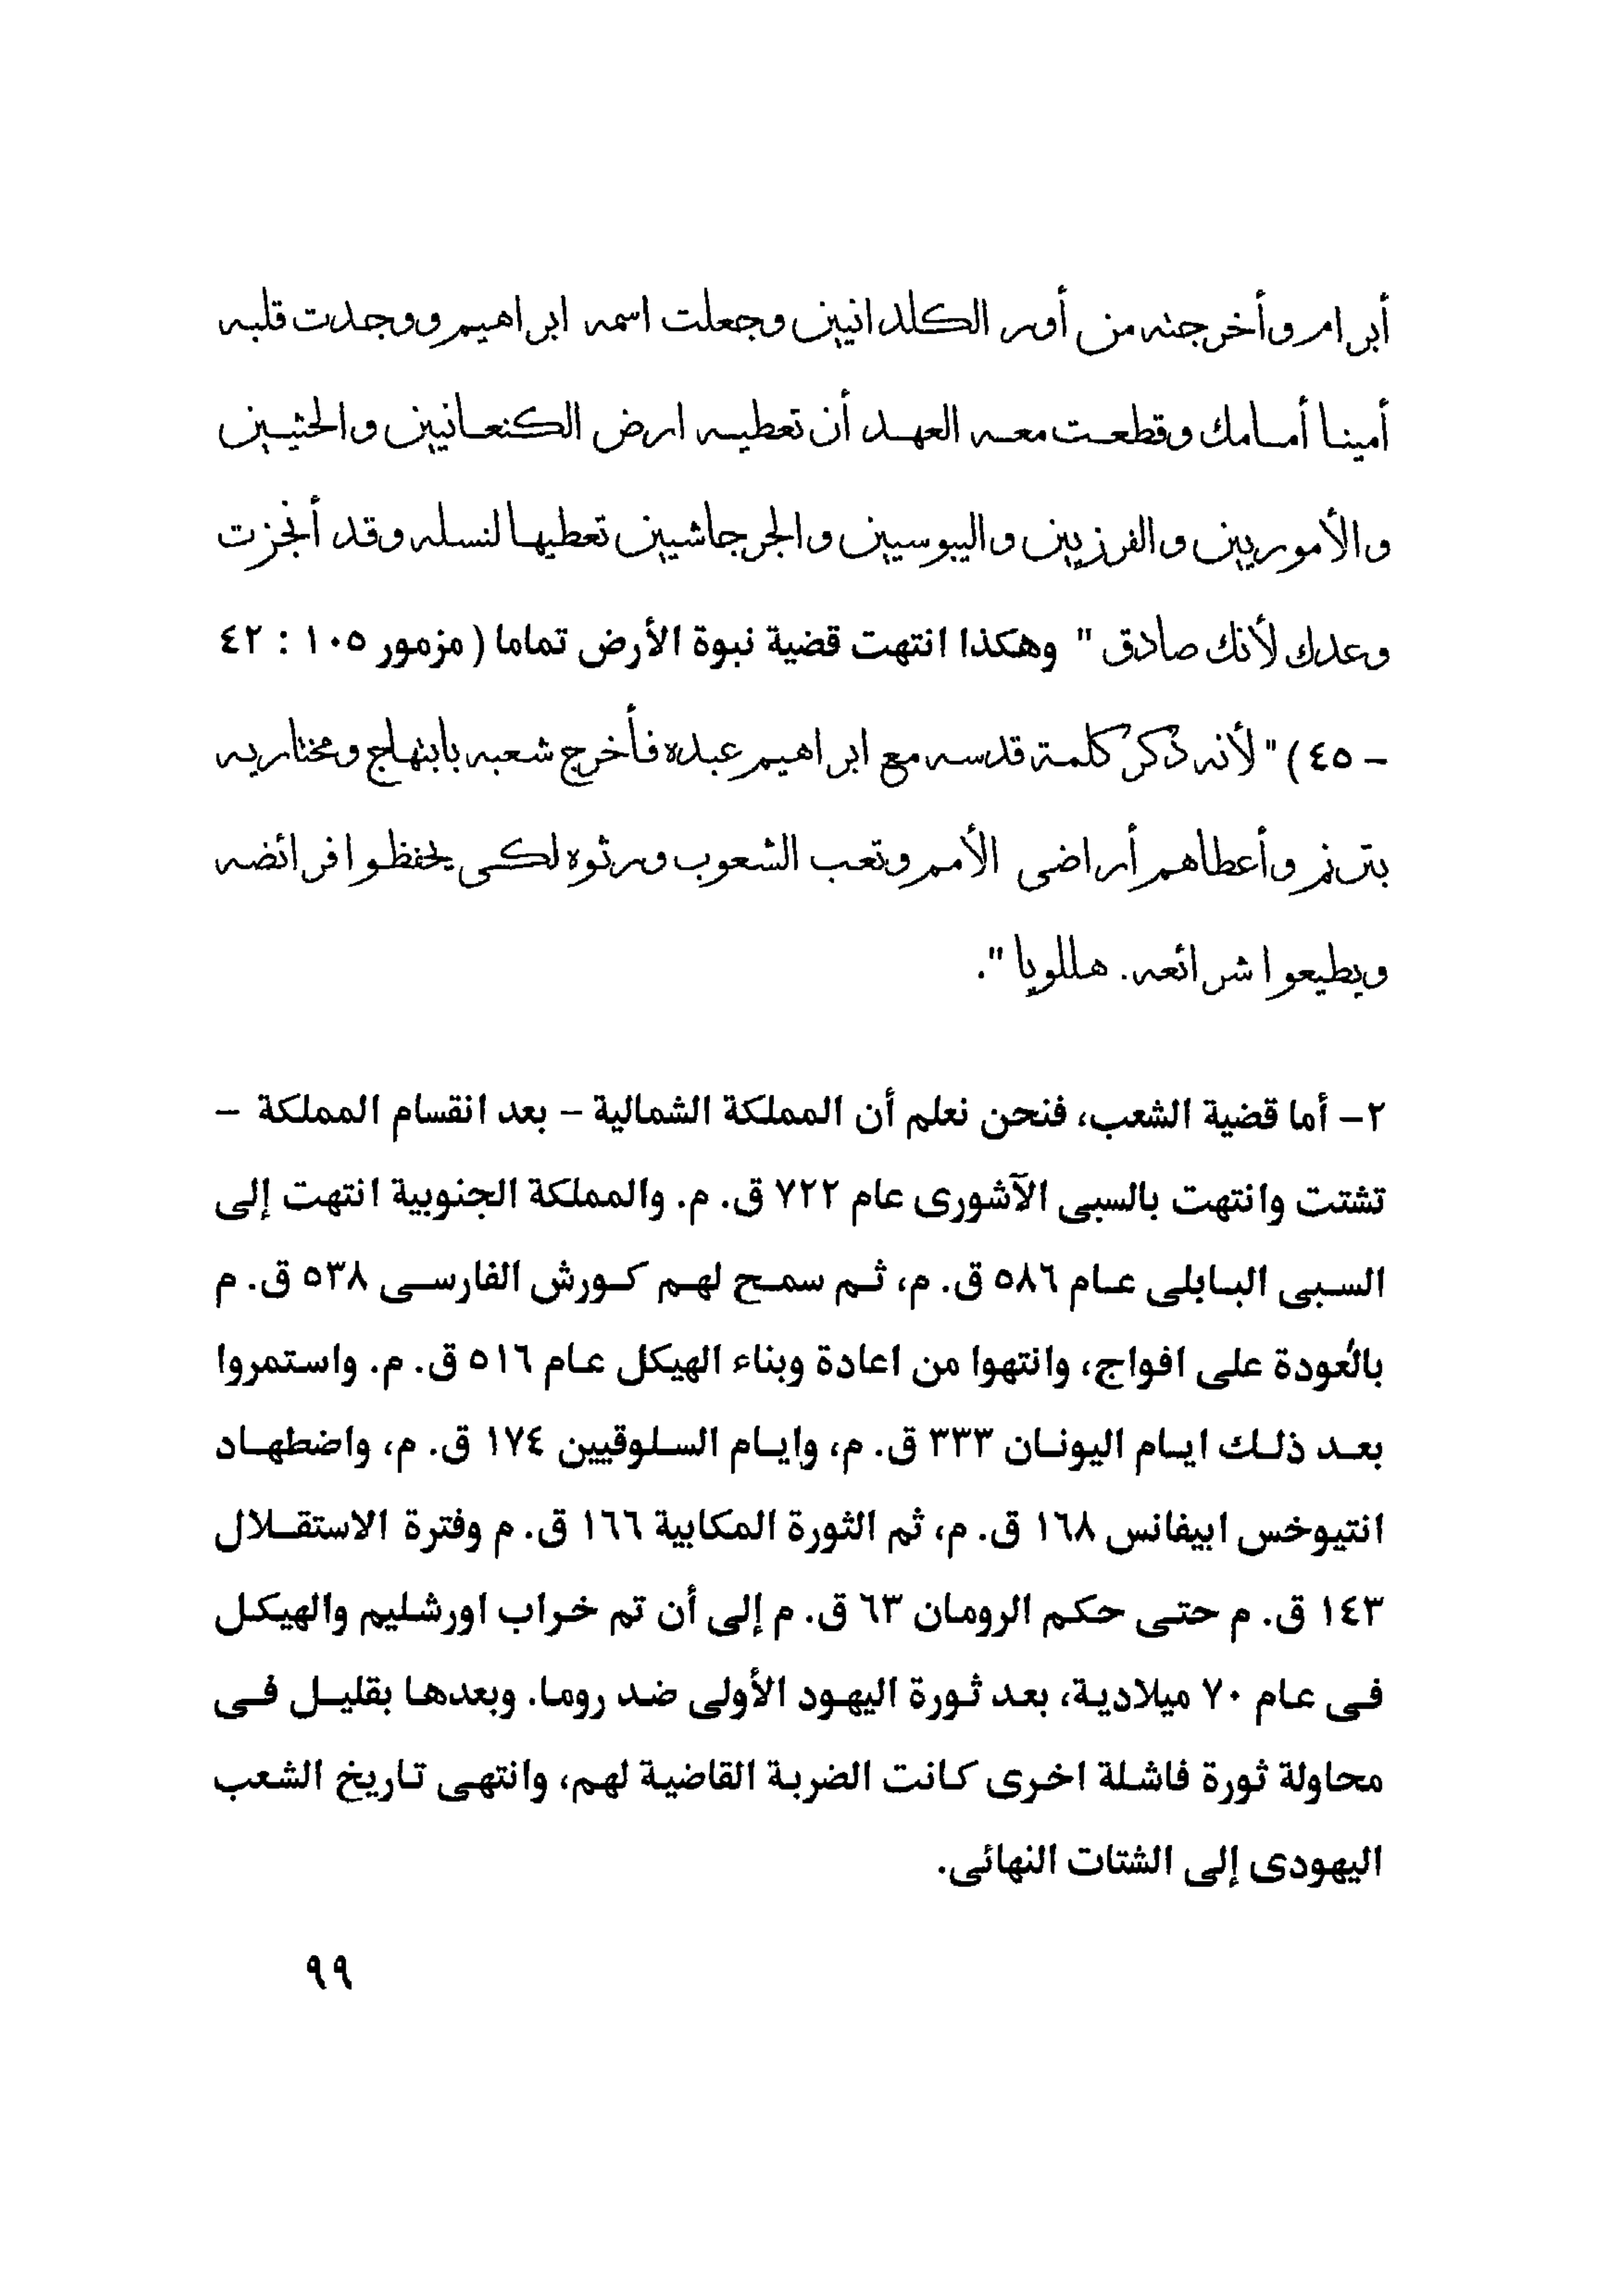 أبرام وأخرجته من أور الكلدانيين وجعلت اسمه ابراهيم ووجدت قلبه
أمينا أمامك وقطعت معه العهد أن تعطيه ارض الكنعانيين والحثيين
والأموريين والفرزيين واليبوسيين والجرجاشيين تعطيها لنسله وقد أنجزت
وعدك لأنك صادق " وهكذا انتهت قضية نبوة الأرض تماما ( مزمور ١٠٥ : ٤٢
– ٤٥ ) " لأنه ذكر كلمة قدسه مع ابراهيم عبده فأخرج شعبه بابتهاج ومختاريه
بترنم وأعطاهم أراضى الأمم وتعب الشعوب ورثوه لكى يحفظوا فرائضه
ويطيعوا شرائعه. هللويا ".
٢– أما قضية الشعب، فنحن نعلم أن المملكة الشمالية – بعد انقسام المملكة –
تشتت وانتهت بالسبى الآشورى عام ٧٢٢ ق. م. والمملكة الجنوبية انتهت إلى
السبى البابلى عام ٥٨٦ ق. م، ثم سمح لهم كورش الفارسى ٥٣٨ ق. م
بالعودة على افواج، وانتهوا من اعادة وبناء الهيكل عام ٥١٦ ق. م. واستمروا
بعد ذلك ايام اليونان ٣٣٣ ق. م، وايام السلوقيين ١٧٤ ق. م، واضطهاد
انتيوخس ابيفانس ١٦٨ ق. م، ثم الثورة المكابية ١٦٦ ق. م وفترة الاستقلال
١٤٣ ق. م حتى حكم الرومان ٦٣ ق. م إلى أن تم خراب اورشليم والهيكل
فى عام ٧٠ ميلادية، بعد ثورة اليهود الأولى ضد روما. وبعدها بقليل فى
محاولة ثورة فاشلة اخرى كانت الضربة القاضية لهم، وانتهى تاريخ الشعب
اليهودى إلى الشتات النهائى.
٩٩